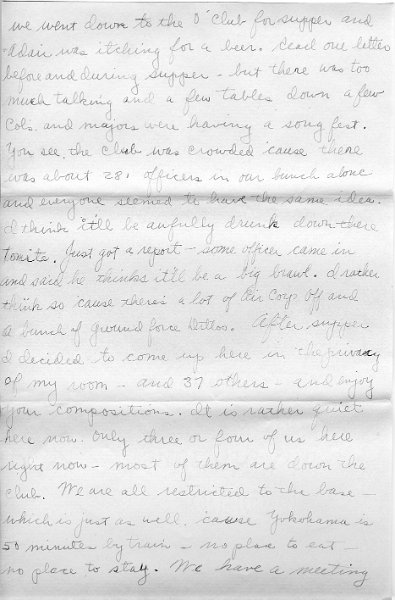 we went down to the O' Club for supper and
Adair was itching for a beer. Read one letter
before and during supper - but there was too
much talking and a few tables down a few
Cols. and majors were having a song fest.
You see, the Club was crowded 'cause there
was about 28 officers in our bunch alone
and everyone seemed to have the same idea.
I think it'll be awfully drunk down there
tonite. Just got a report - some officer came in
and said he thinks it'll be a big brawl. I rather
think so 'cause there's a lot of Air Corp Off and
a bunch of ground force Dittos. After supper
I decided to come up here in the privacy
of my room - and 37 others - and enjoy
your compositions. It is rather quiet
here now. Only three or four of us here
right now - most of them are down the
club. We are all restricted to the base -
which is just as well, 'cause Yokohama is
50 minutes by train - no place to eat -
no place to stay. We have a meeting